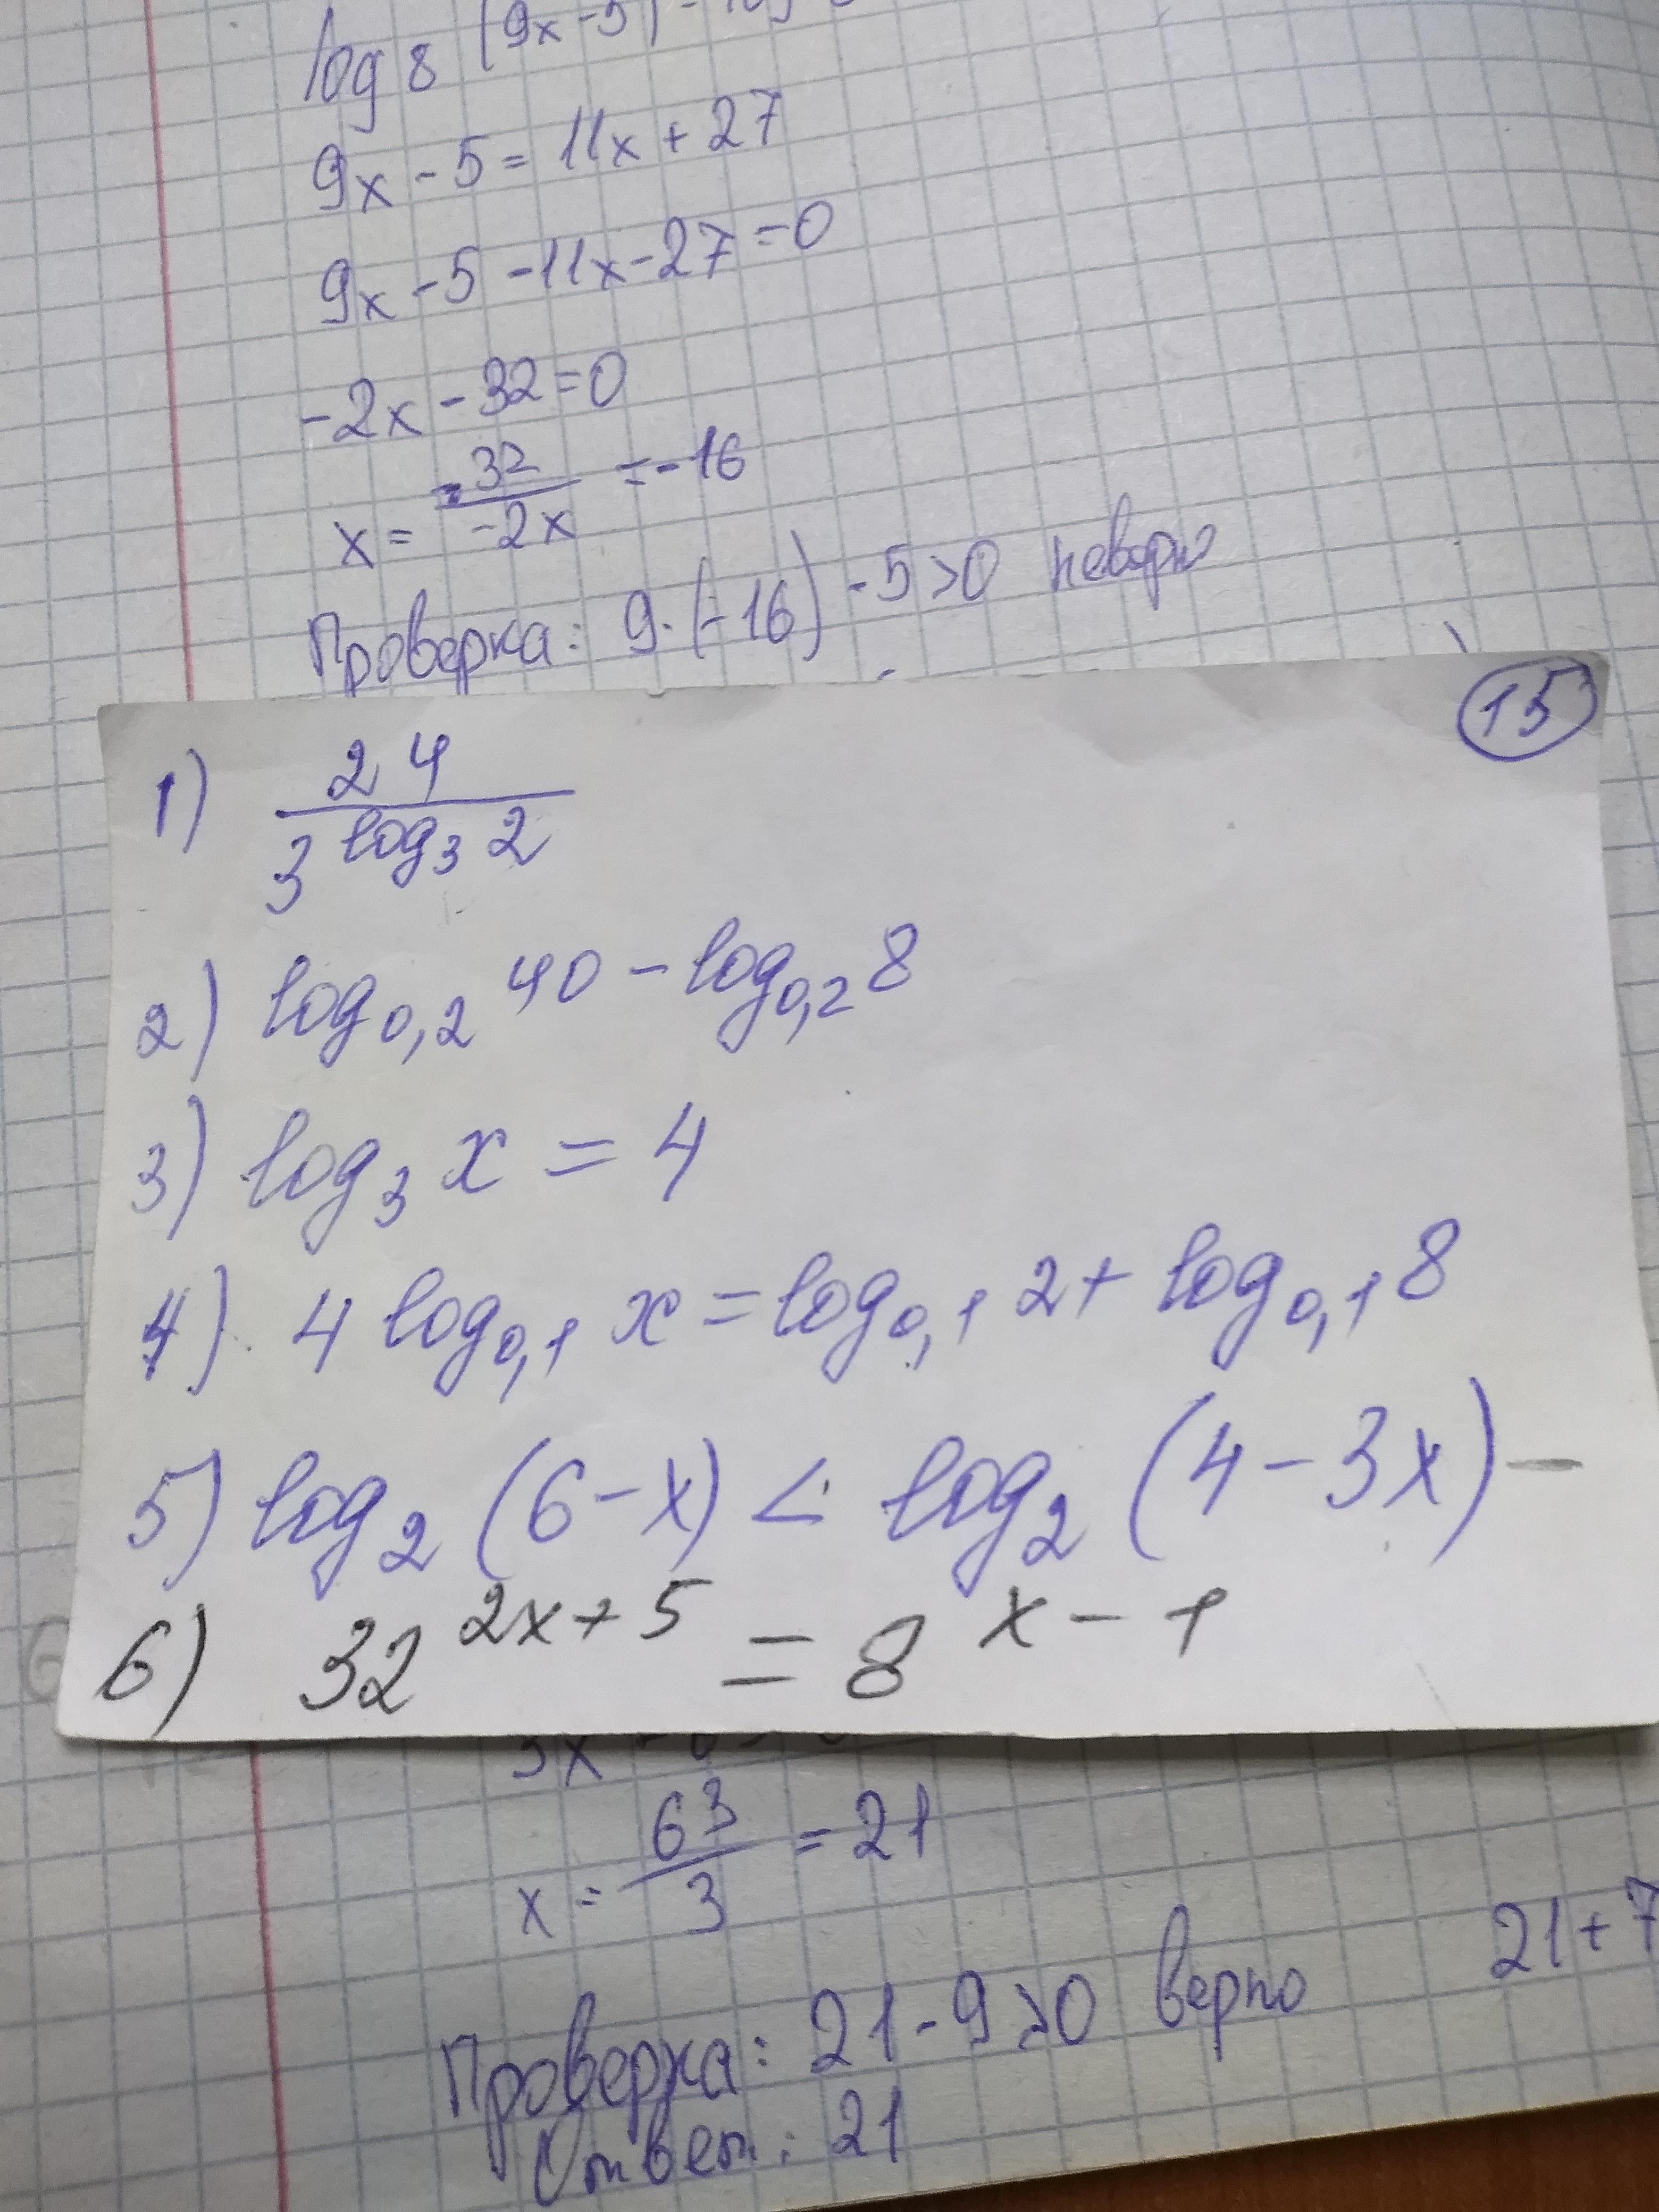 log₈ (9x-5)
9x - 5 = 11x + 27
9x - 5 - 11x - 27 = 0
-2x - 32 = 0
x = 32/-2x = -16
Проверка: 9·(-16) - 5 > 0 неверно
15
1) 24/3^(log₃ 2)
2) log₀,₂ 40 - log₀,₂ 8
3) log₃ x = 4
4) 4 log₀,₁ x = log₀,₁ 2 + log₀,₁ 8
5) log₂ (6 - x) < log₂ (4 - 3x) -
6) 32^(2x+5) = 8^(x-1)
x = 63/3 = 21
Проверка: 21 - 9 > 0 верно 21 + 7
Ответ: 21